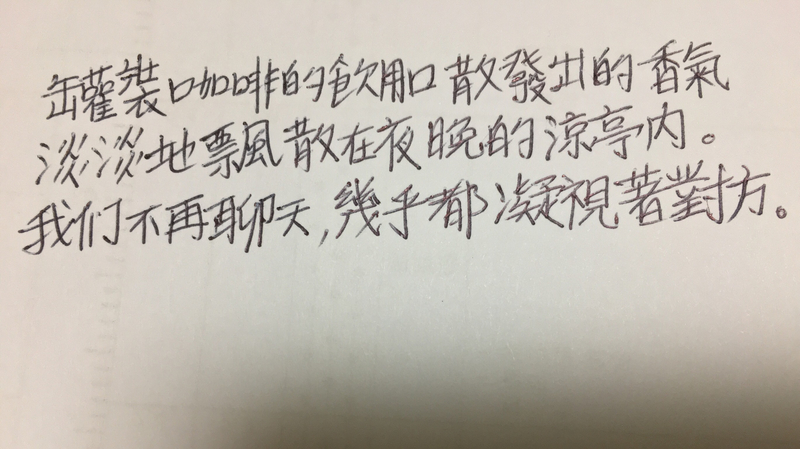 罐裝咖啡的飲用口散發出的香氣
淡淡地飄散在夜晚的涼亭內。
我们不再聊天,幾乎都凝視著對方。